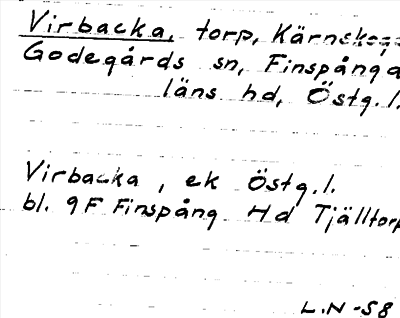 Virbacka, torp, Kärnskogs
Godegårds sn, Finspånga
läns hd, Östg.l.
Virbacka, ek Östg.l.
bl. 9F Finspång Hd Tjälltorp
L.N -58